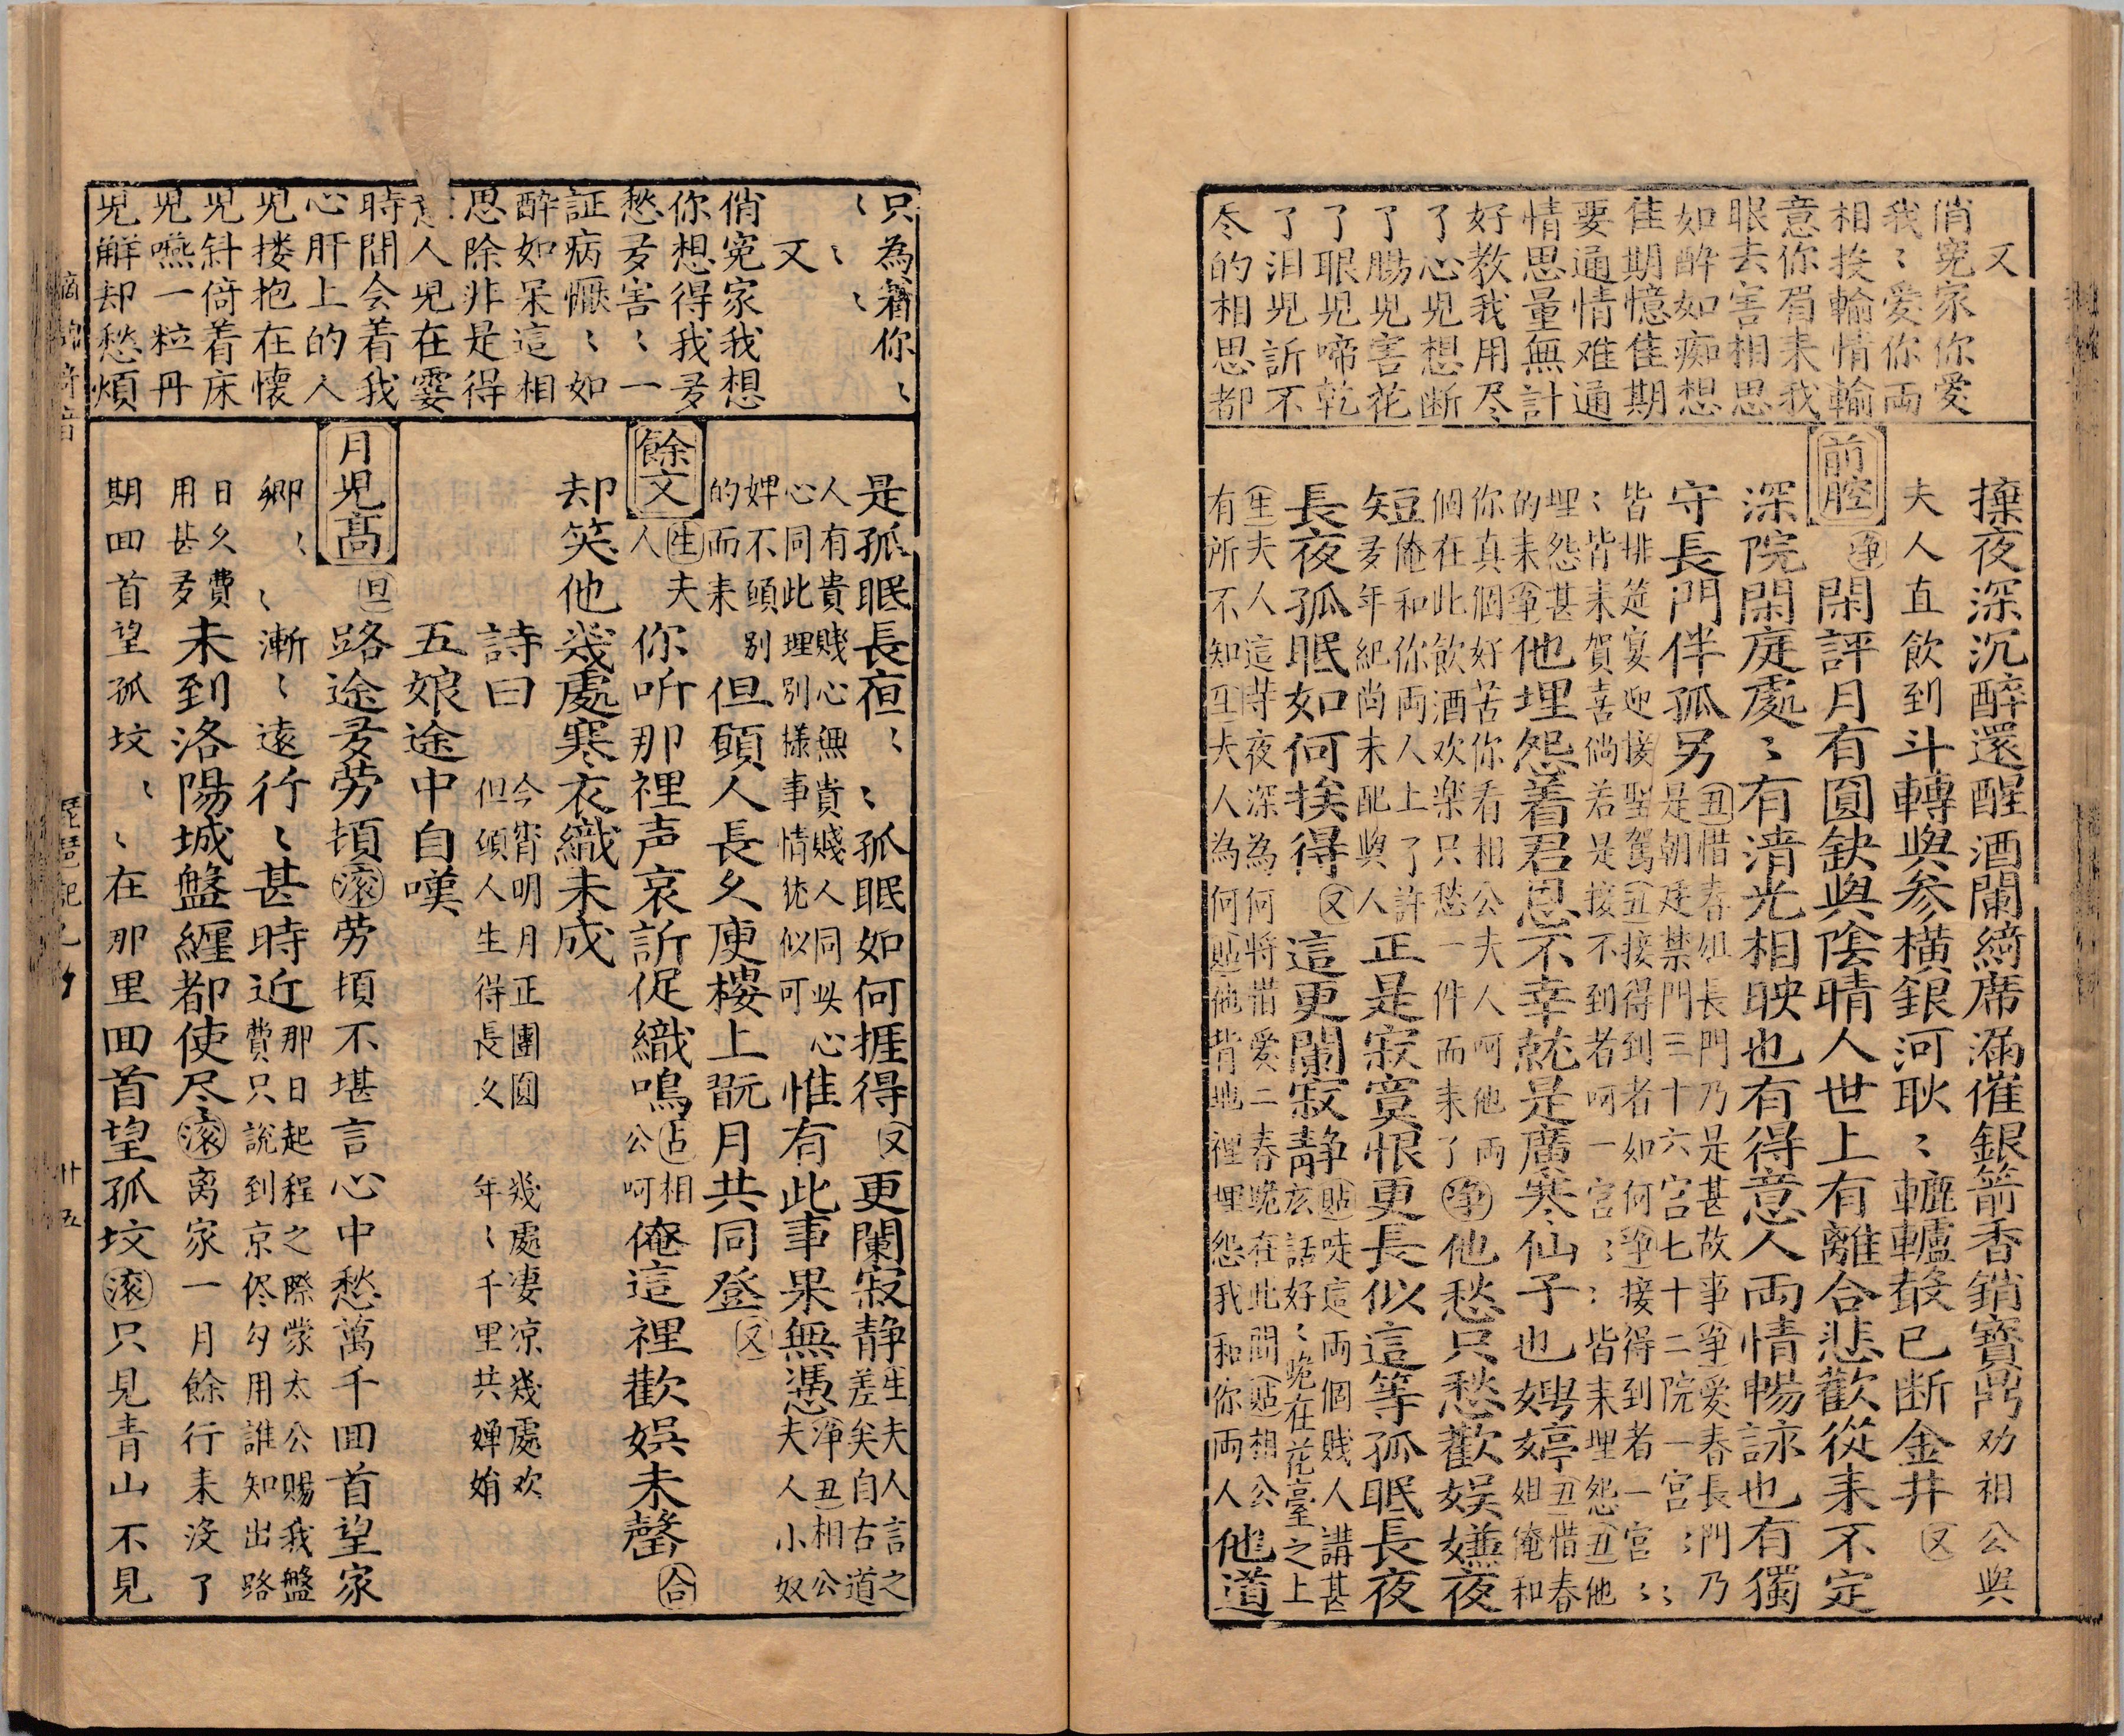 又
俏冤家你愛
我〻愛你両
相挨輸情輸
意你眉来我
眼去害相思
如醉如痴想
佳期憶佳期
要通情难通
情思量無計
好教我用尽
了心児想断
了腸児害花
了眼児啼乾
了泪児訴不
尽的相思都
橖夜深沉醉還醒酒闌綺席滿催銀箭香銷寳鼎劝相公與
夫人直飲到斗轉與参横銀河耿〻轆轤聲已断金井又
前腔 净 閑評月有圓缺與陰晴人世上有離合悲歡從来不定
深院閑庭處〻有清光相映也有得意人両情暢詠也有獨
守長門伴孤另
丑惜春姐長門乃是甚故事净愛春長門乃
是朝廷禁門三十六宮七十二院一宮〻
皆排筵宴迎接聖駕丑接得到者如何净接得到者一宮〻
〻皆来賀喜倘若是接不到者呵一宮〻皆来埋怨丑他
埋怨甚
的来净他埋怨着君恩不幸就是廣寒仙子也娉婷
丑惜春
姐俺和
你真個好苦你看相公夫人呵他両
個在此飲酒欢樂只愁一件而来了净他愁只愁歡娱嫌夜
短俺和你両人上了許
矣多年紀尚未配與人正是寂寞恨更長似這等孤眠長夜
長夜孤眠如何挨得又這更闌寂静
貼唗這両個賎人講甚
玄話好〻晚在花臺之上
生夫人這時夜深為何將惜愛二春晚在此間貼相公
有所不知生夫人為何貼他背地裡埋怨我和你両人他道
只為着你〻
〻〻〻
又
俏冤家我想
你想得我多
愁多害〻一
証病懨〻如
醉如呆這相
思除非是得
人児在霎
時間会着我
心肝上的人
児搂抱在懷
児斜倚着床
児嚥一粒丹
児觧却愁煩
是孤眠長夜〻〻孤眠如何捱得又更闌寂静
生夫人言之
差矣自古道
人有貴賎心無貴賎人同此心
心同此理別樣事情犹似可惟有此事果無憑
净丑相公
夫人小奴
婢不願別
的而来但願人長久庾樓上翫月共同登又
餘文 生夫人你听那裡声哀訴促織鳴占相公呵俺這裡歡娯未罄合
却笑他幾處寒衣織未成
詩曰 今宵明月正團圓 幾處凄凉幾處欢
但願人生得長久 年〻千里共嬋娟
五娘途中自嘆
月児髙 旦路途多劳頓滚劳頓不堪言心中愁萬千囬首望家
鄉〻〻漸〻遠行〻甚時近
那日起程之際蒙太公賜我盤
費只説到京侭勾用誰知出路
日久費
用甚多未到洛陽城盤纏都使尽滚离家一月餘行来没了
期囬首望孤坟〻〻在那里囬首望孤坟滚只見青山不見
琵琶記
廿五